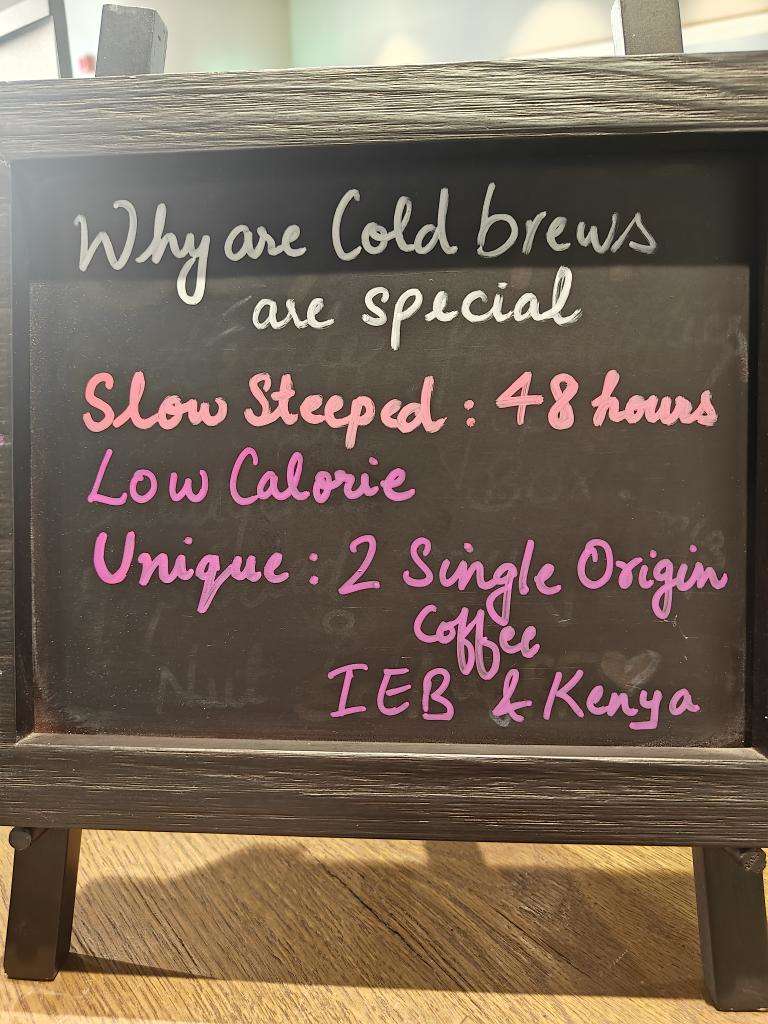 Why are Cold brews
are special
Slow Steeped : 48 hours
Low Calorie
Unique : 2 Single Origin
Coffee
IEB & Kenya